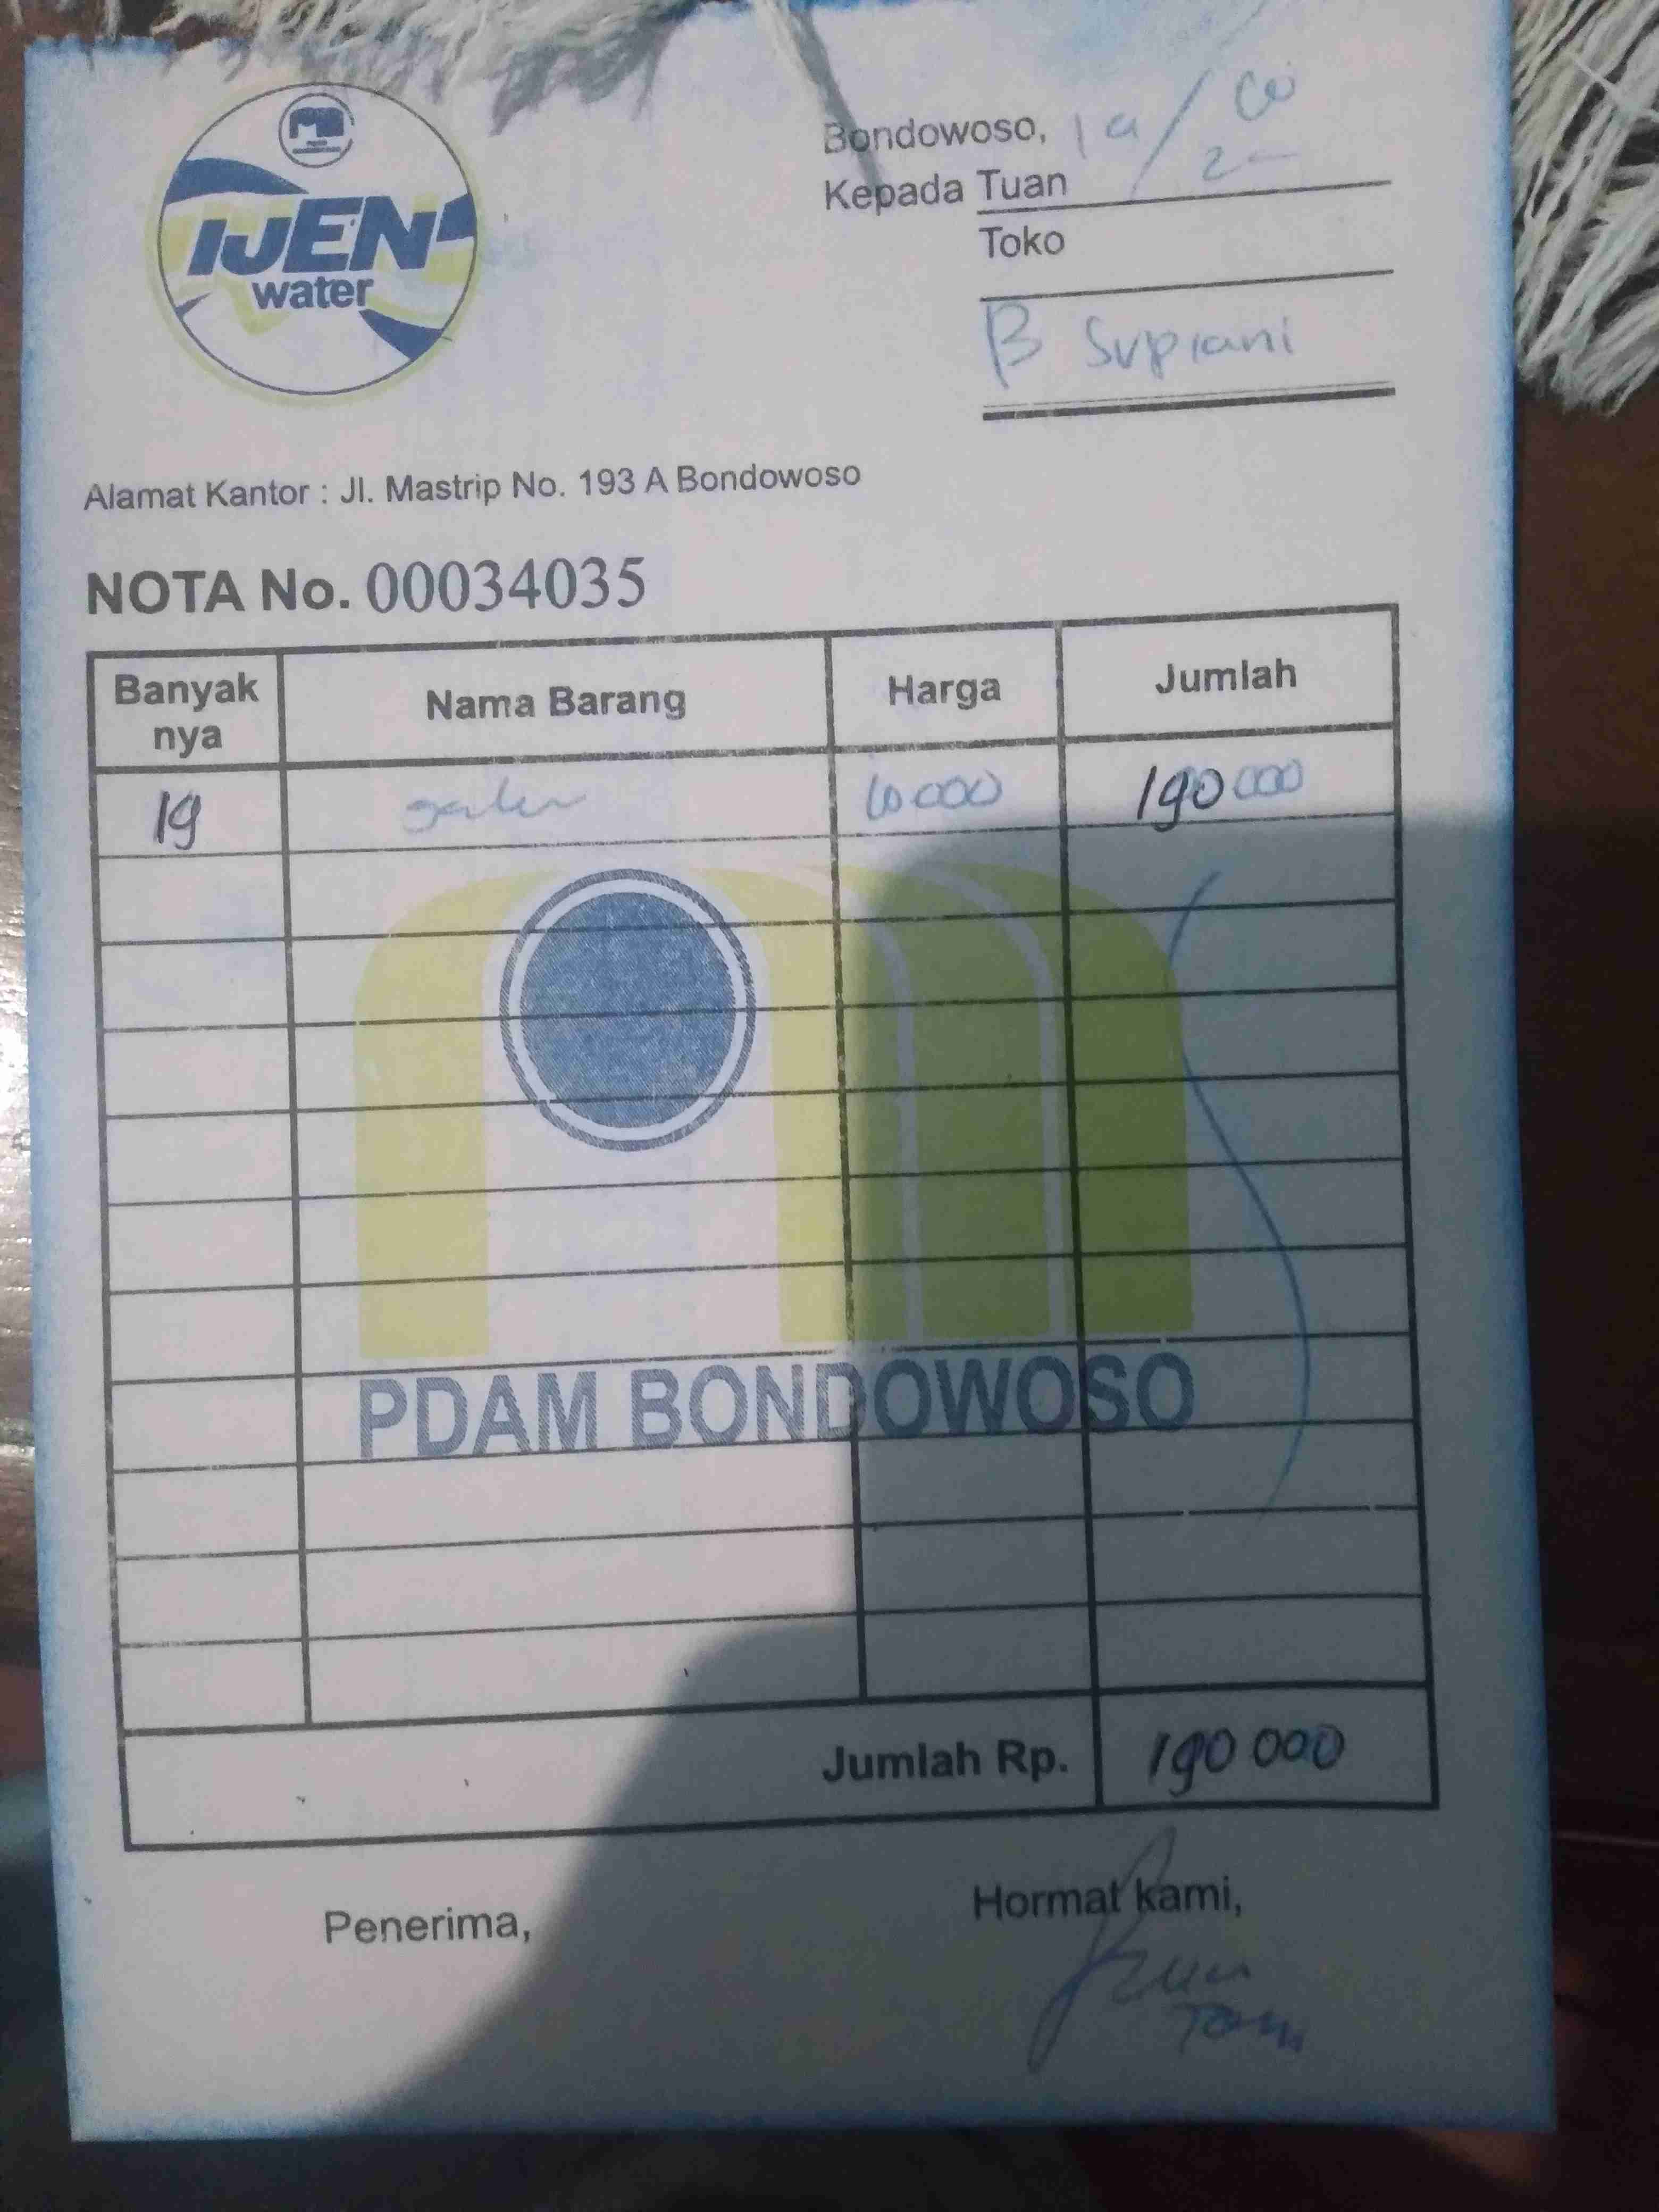 IJEN
water
Bondowoso,
Kepada Tuan
Toko
B Supiani
Alamat Kantor : Jl. Mastrip No. 193 A Bondowoso
NOTA No. 00034035
Banyak nya Nama Barang Harga Jumlah
19 galon 10 000 190 000
PDAM BONDOWOSO
Jumlah Rp. 190 000
Penerima,
Hormat kami,